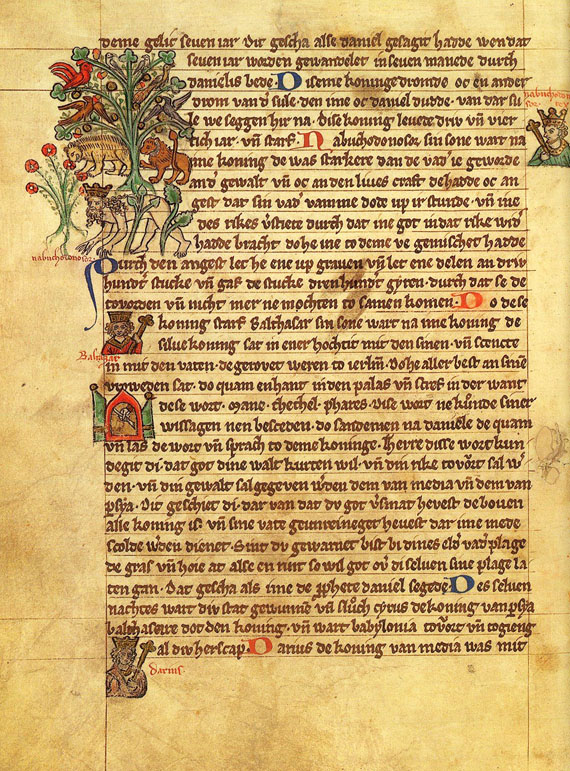 deme gelic seven iar. Dit gescha alse daniel gesagit hadde wen dat
seven iar worden gewandelet in seven manede durch
danielis bede. Diseme koninge dromde oc en ander
drom van d' sule. den ime oc daniel dudde. van dar su
le we seggen hir na. Dise koning levete driv vn̄ vier
tich iar. vn̄ starf. Nabuchodonosor sin sone wart na
nabuchodono
sor. rex
ime koning de was starkere dan de vad' ie geworde
an d' gewalt vn̄ oc an den lives craft. de hadde oc an
gest dat sin vad' van ime dode up ir stunde. vn̄ ine
des rikes v'stiete durch dat ine got in dat rike wid'
hadde bracht do he ine to deme ve gemischet hadde
nabuchodonosor.
Durch den angest let he ene up graven vn̄ let ene delen an driv
hundt stucke vn̄ gaf de stucke drin hundt gyren. durch dat se de
tovorden vn̄ nicht mer ne mochten to samen komen. Do dese
koning starf Balthasar sin sone wart na ime koning de
selve koning sat in ener hochtit mit den sinen. vn̄ scencte
Baltazar
in mit den vaten. de gerovet weren to ierl'm. Do he aller best an sinen
vroweden sat. do quam en hant in den palas vn̄ screif in der want
dese wort. Mane. thechel. phares. Dise wort ne kunde siner
wissagen nen besceden. do santemen na daniele de quam
vn̄ las de wort vn̄ sprach to deme koninge. Herre disse wort kun
degit di. dat got dine walt kurten wil. vn̄ din rike tovort sal w'
den. vn̄ din gewalt sal gegeven w'den dem van media vn̄ dem van
p'sya. Dit geschiet di. dar van dat dv got v'smat hevest de boven
alle koning is. vn̄ sine vate geunreineget hevest dar ime mede
scolde w'den dienet. Sint dv gewarnet bist bi dines eld' vad' plage
de gras vn̄ hoie at alse en nut so wil got ov' di selven sine plage la
ten gan. Dat gescha als ime de p'phete daniel segede. Des selven
nachtes wart div stat gewunnen vn̄ sluch cyrus de koning van p'sya
balthasare dot den koning. vn̄ wart babylonia tovort vn̄ togieng
al div herscap. Darius de koning van media was mit
darius.